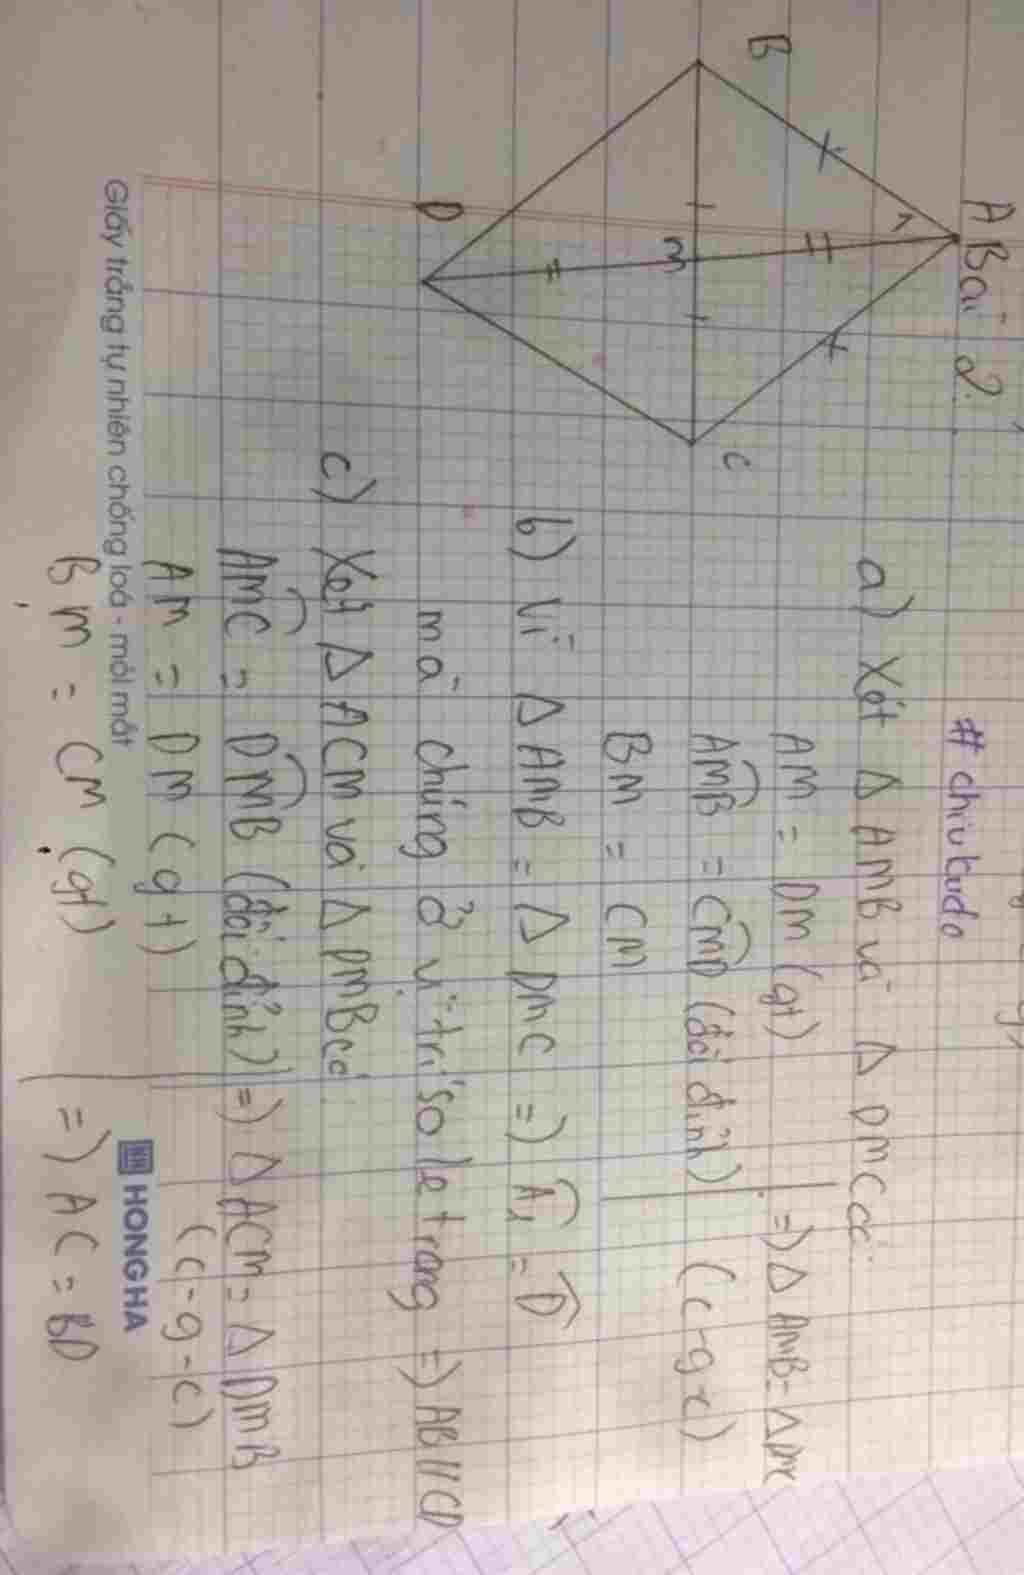 Bài 2:
A
B
C
M
D
1
# chiutudo
a) Xét Δ AMB và Δ DMC có:
AM = DM (gt)
AMB = CMD (đối đỉnh)
BM = CM
=) Δ AMB = Δ DMC
(c-g-c)
b) Vì Δ AMB = Δ DMC =) A1 = D
mà chúng ở vị trí so le trong =) AB // CD
c) Xét Δ ACM và Δ DMB có
AMC = DMB (đối đỉnh) =) Δ ACM = Δ DMB
AM = DM (gt)
(c-g-c)
BM = CM (gt)
=) AC = BD
Giấy trắng tự nhiên chống loá - mỏi mắt
HH HONG HA